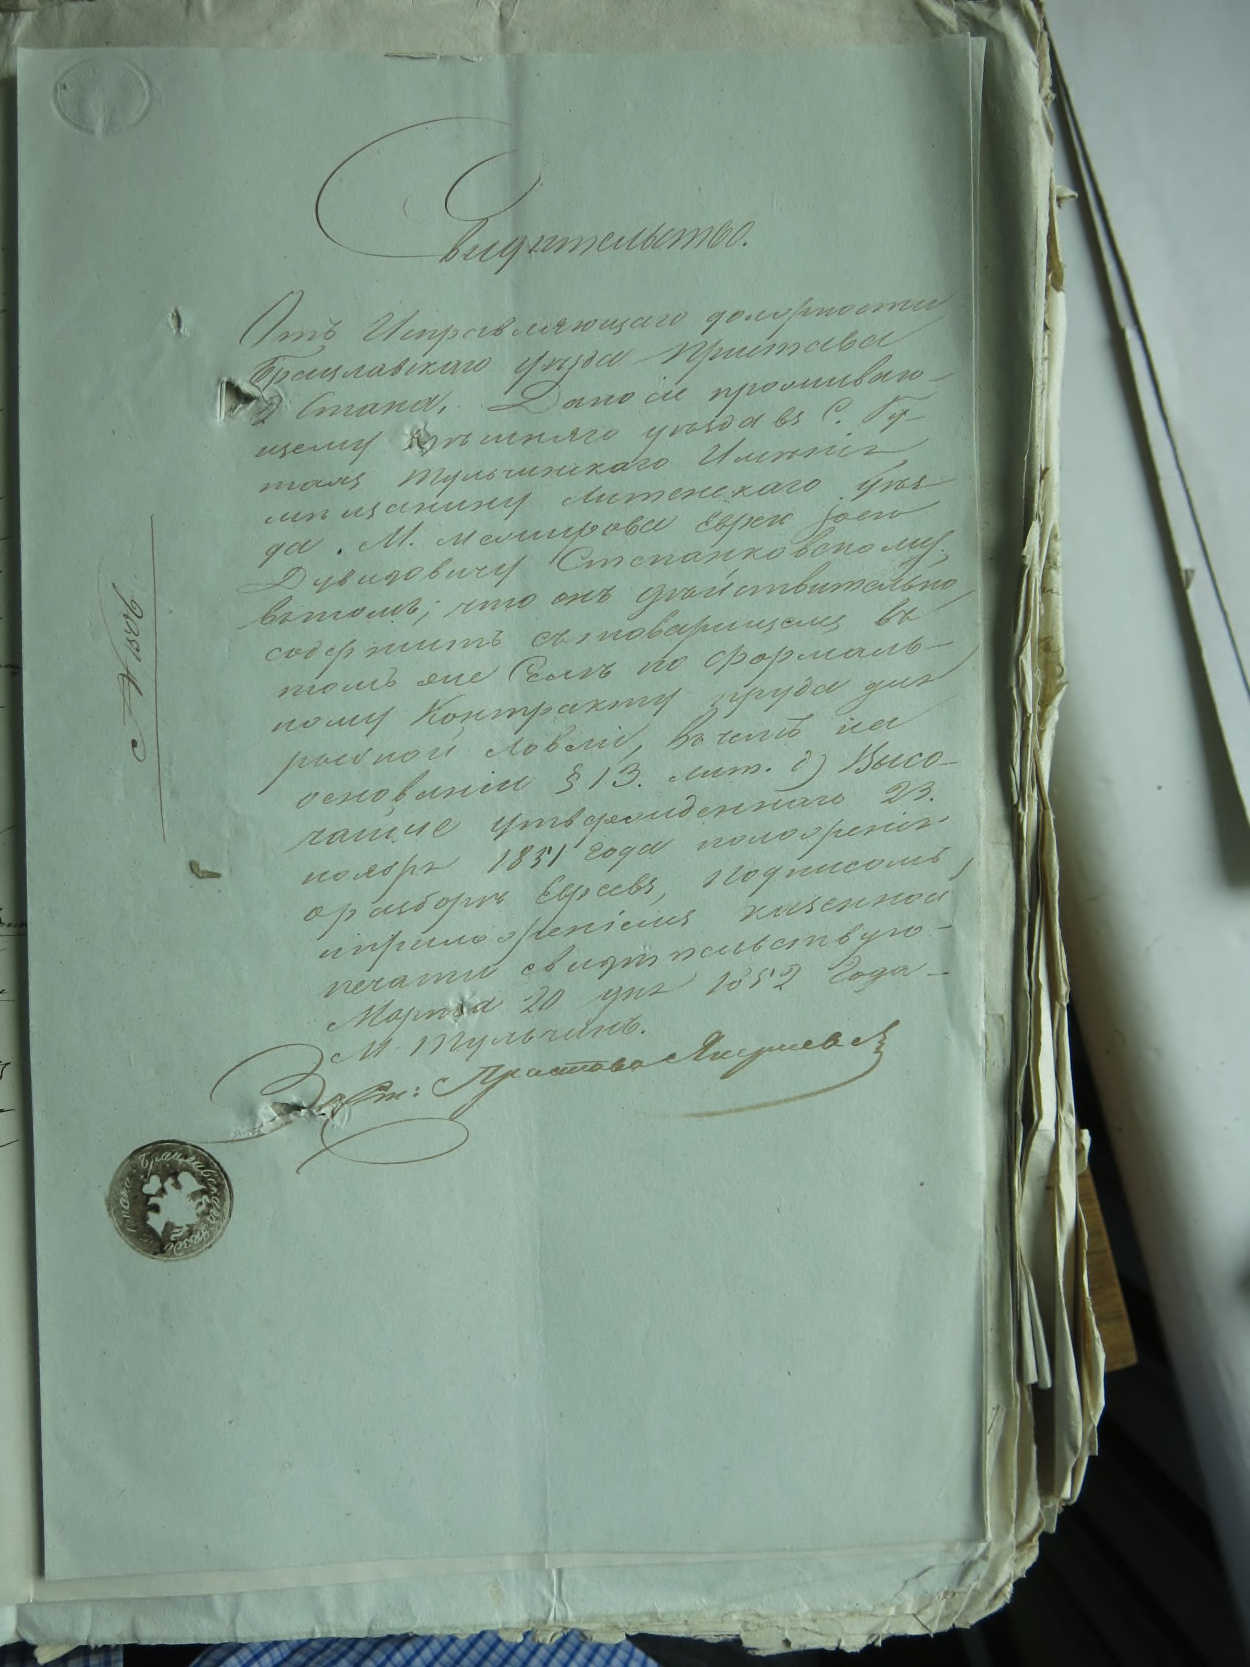 Свидительство.
Отъ Исправляющаго должности
Брацлавскаго уезда Пристава
2 Стана. Дано сіе проживаю-
щему здешняго уезда въ С.
Тульчинскаго Имѣнія
мѣщанину Литенскаго уѣз
да М. Межирова Еврею
Дувидовичу Степанковскому,
вътомъ, что онъ дѣйствительно
содержитъ сътоварищемъ въ
томъ же Селѣ по формаль-
ному Контракту пруда для
рыбной ловли, въ чемъ на
основаніи § 13. лит. Высо-
чайше утвержденнаго 23.
ноября 1851 года положенія
о разборѣ Евреевъ, подписомъ
и приложеніемъ казенной
печати свидѣтельствую
Марта 20 дня 1852 Года
М. Тульчинъ.
Пристава
N 1356